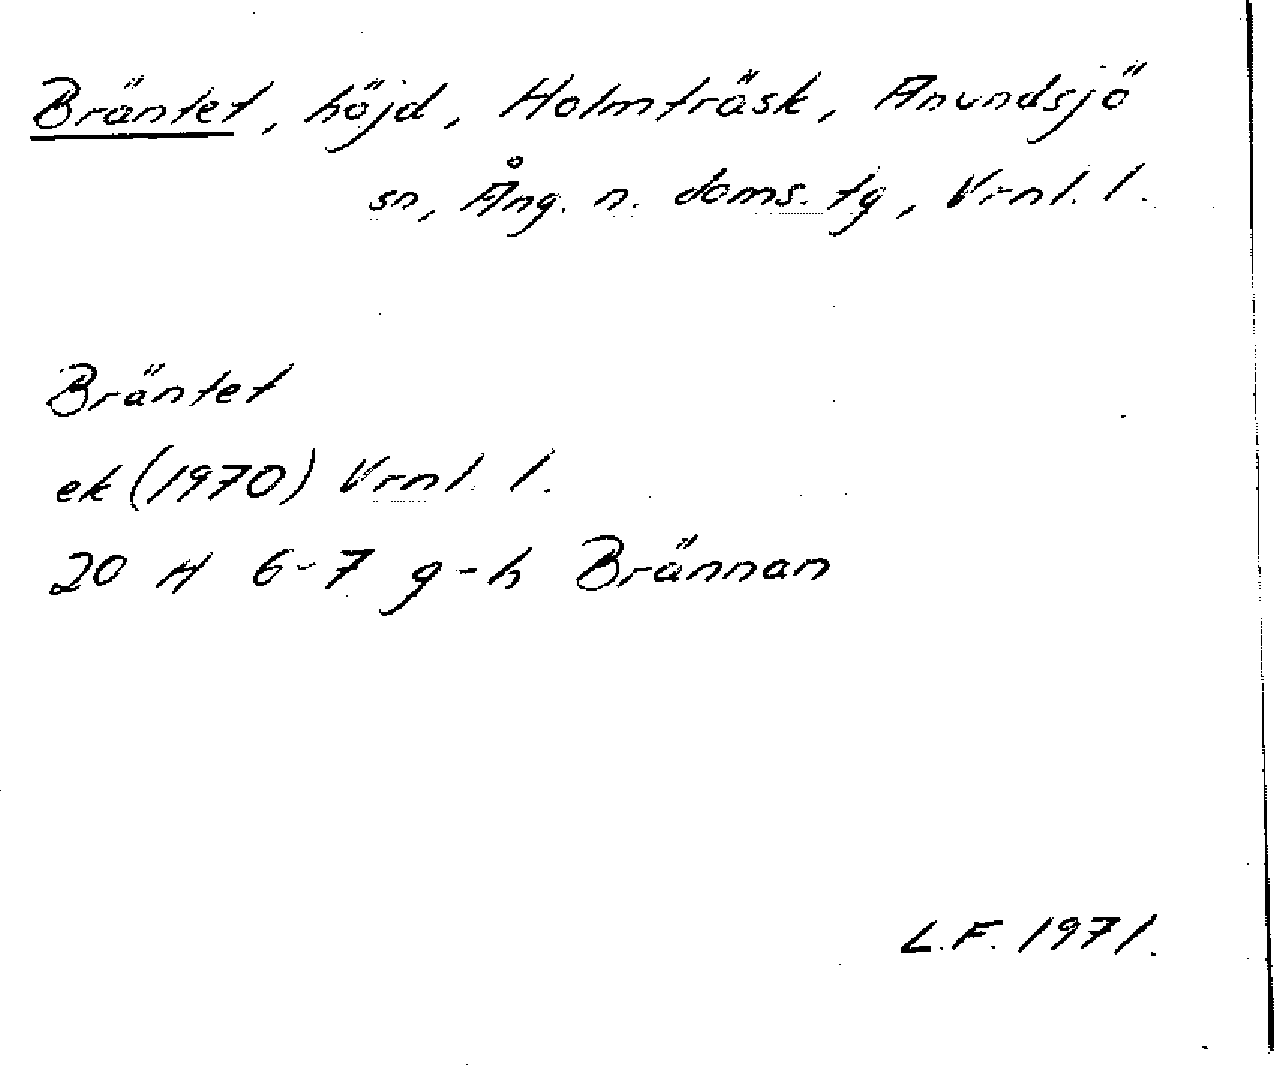 Bräntet, höjd, Holmträsk, Anundsjö
sn, Ång. n. doms. tg, Vrnl. l.
Bräntet
ek (1970) Vrnl. l.
20 H 6-7 g-h Brännan
L.F. 1971.